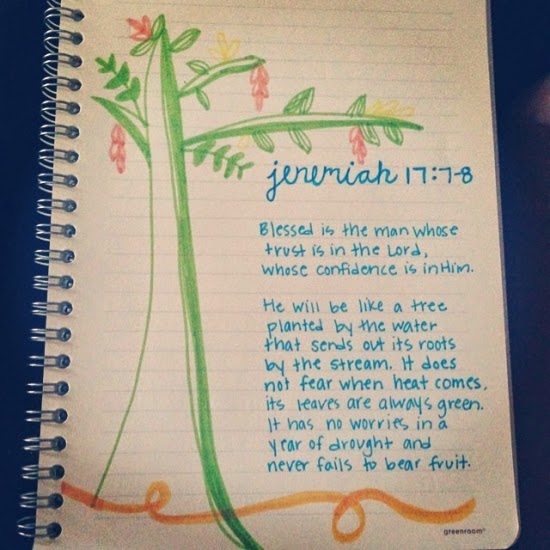 jeremiah 17:7-8
Blessed is the man whose
trust is in the Lord,
whose confidence is in Him.
He will be like a tree
planted by the water
that sends out its roots
by the stream. It does
not fear when heat comes,
its leaves are always green.
It has no worries in a
year of drought and
never fails to bear fruit.
greenroom